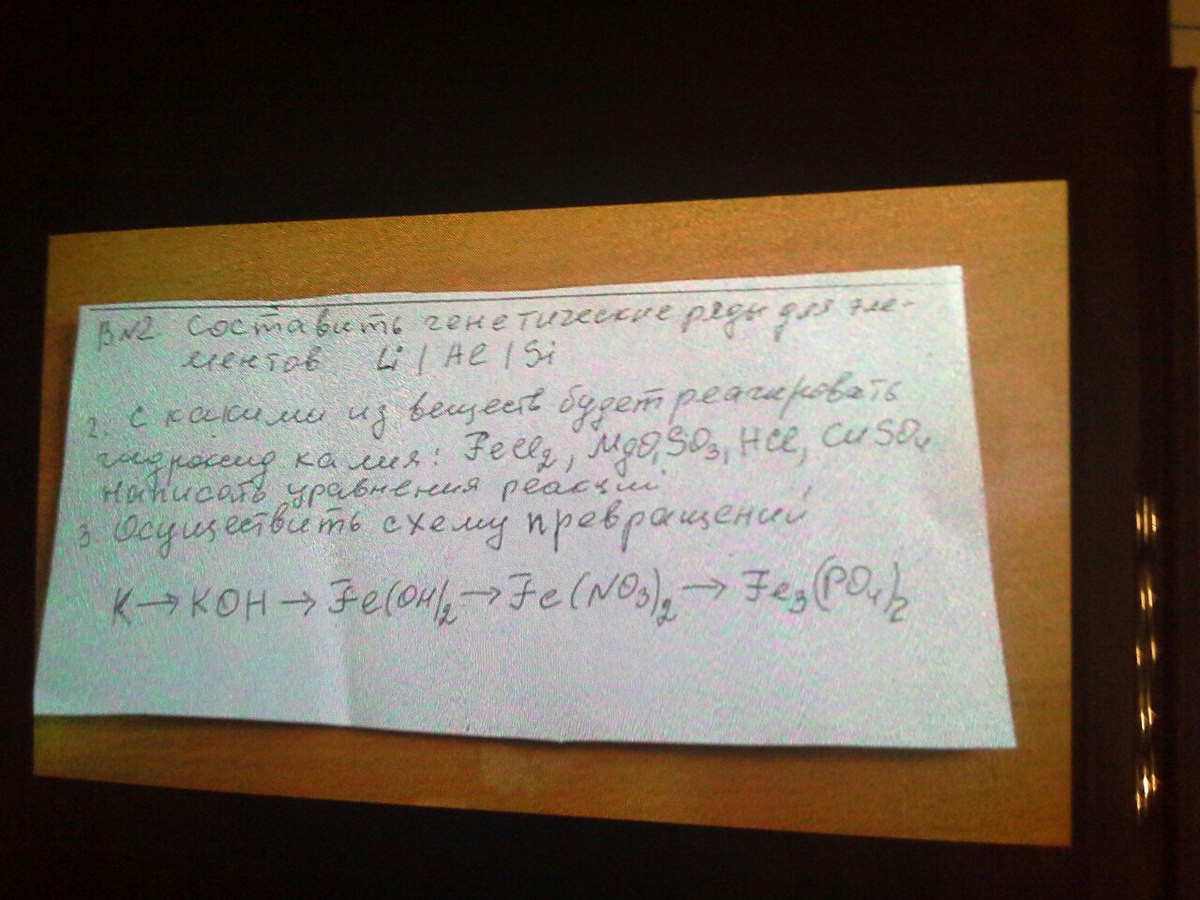 В№2. Составить генетические ряды для эле-
ментов Li | Al | Si
2. С какими из веществ будет реагировать
гидроксид калия: FeCl₂, MgO, SO₃, HCl, CuSO₄
Написать уравнения реакций
3. Осуществить схему превращений
K → KOH → Fe(OH)₂ → Fe(NO₃)₂ → Fe₃(PO₄)₂